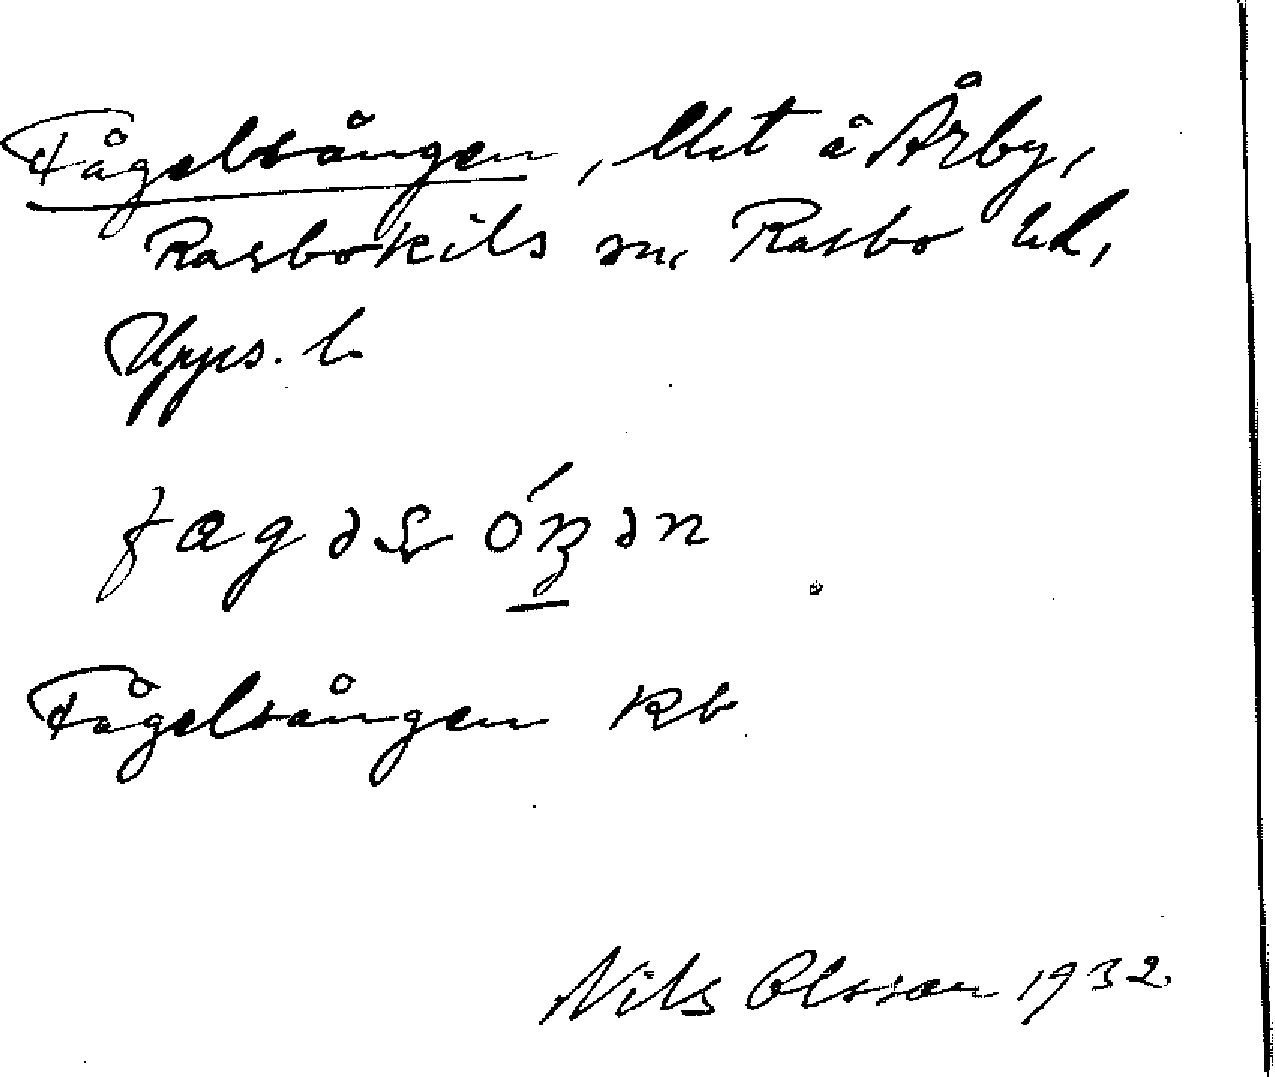 Fågelsången, lht å Årby,
Rasbokils sn, Rasbo hd,
Upps. l.
Fågelsången Kb
Nils Olsson 1932